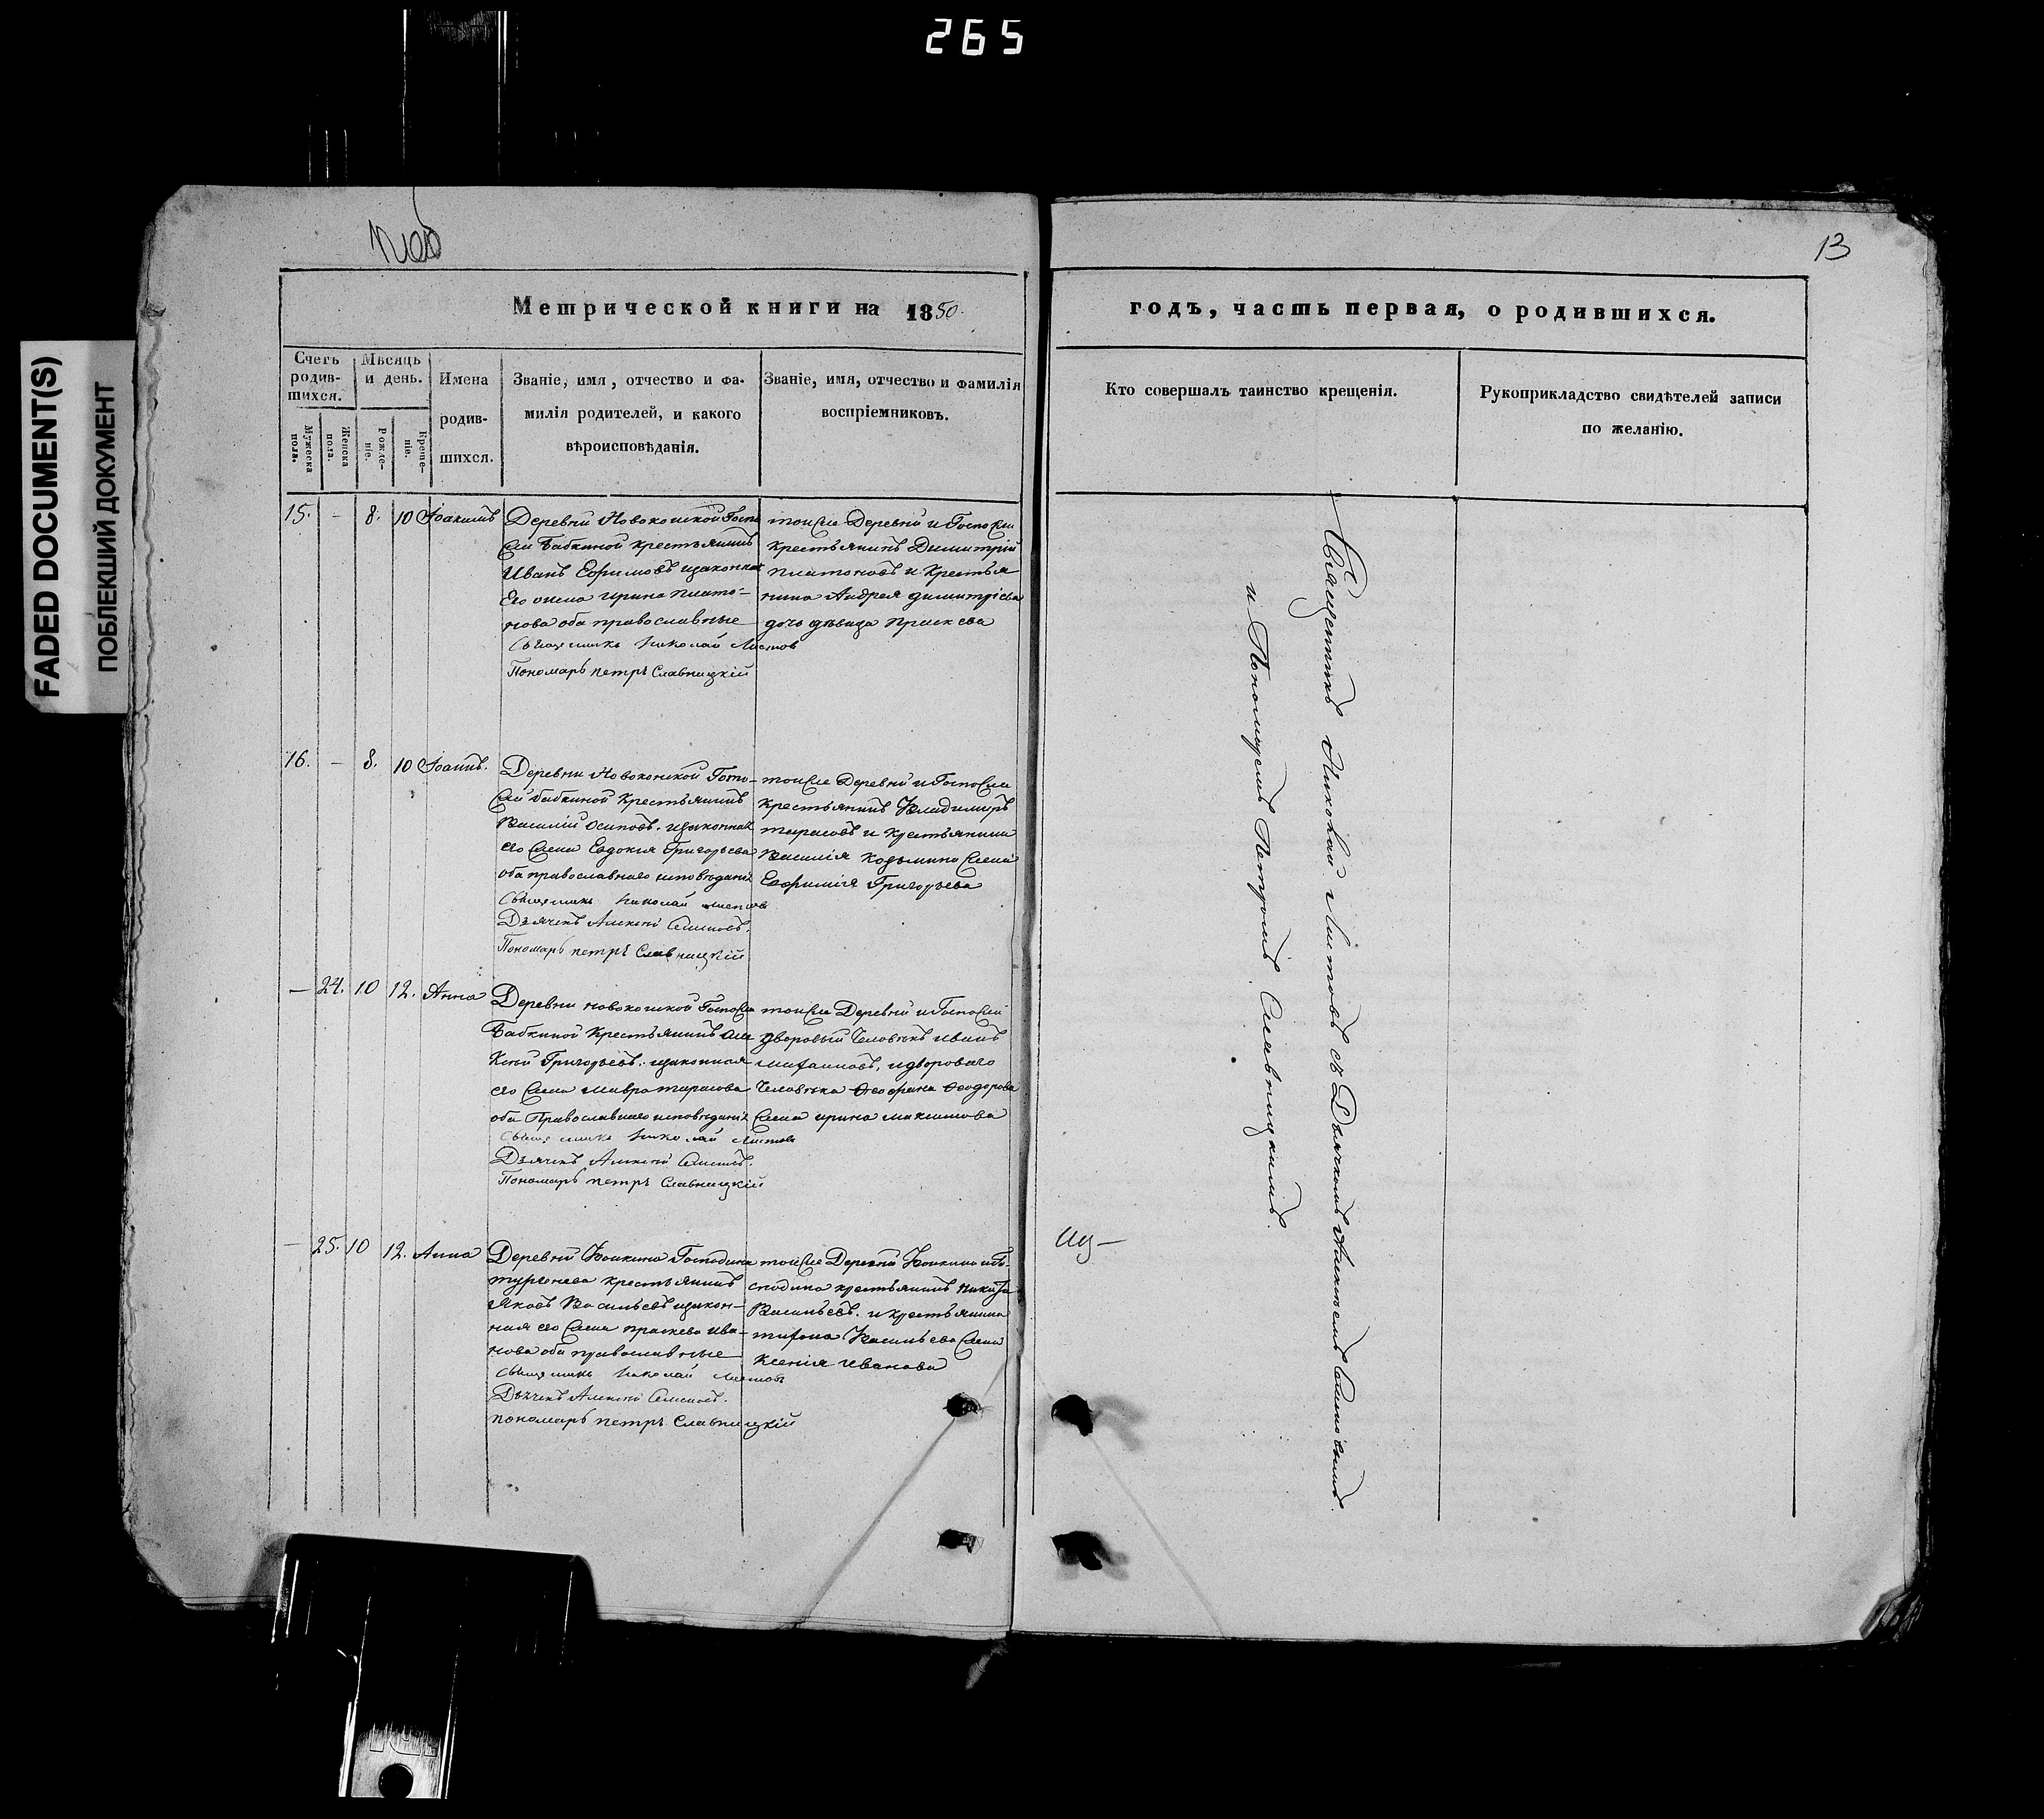 265
FADED DOCUMENT(S)
ПОБЛЕКШИЙ ДОКУМЕНТ
13
Метрической книги на 1850.
годъ, часть первая, о родившихся.
Счетъ родив-шихся.
Мужеска пола.
Женска пола.
Мѣсяцъ и день.
Рожде-ніе.
Креще-ніе.
Имена
родив-
шихся.
Званіе, имя, отчество и фа-
милія родителей, и какого
вѣроисповѣданія.
Званіе, имя, отчество и фамилія
воспріемниковъ.
Кто совершалъ таинство крещенія.
Рукоприкладство свидѣтелей записи
по желанію.
15. - 8. 10 Іоакимъ
Деревни Госпо
жи Бабкиной крестьянинъ
Иванъ Ефимовъ изаконная
Его жена Ирина Плато-
нова оба православные
Священникъ Николай Листовъ
Пономарь петръ Славницкій
тоиже Деревни и Госпожи
крестьянинъ Димитрій
Платоновъ и Крестья
нина Андрея димитріева
дочь дѣвица
16. - 8. 10 Іоаннъ.
Деревни Госпо-
жи бабкиной Крестьянинъ
Василій Осиповъ. изаконная
его жена Евдокія Григорьева
оба православнаго исповѣданія
Священникъ Николай Листовъ
Дьячекъ Алексѣй Семеновъ.
Пономарь петръ Славницкій
тоиже Деревни и Госпожи
Крестьянинъ Владимиръ
тарасовъ и крестьянина
Василія Козьмина жена
Евфимія Григорьева
- 24. 10 12. Анна
Деревни Госпожи
Бабкиной Крестьянинъ Але
ксѣй Григорьевъ. изаконная
его жена Мавра тарасова
оба Православнаго исповѣданія
Священникъ Николай Листовъ
Дьячекъ Алексѣй Семеновъ.
Пономарь петръ Славницкій
тоиже Деревни и Госпожи
дворовый Человѣкъ иванъ
идвороваго
Человѣка Ѳеодорова
жена ирина максимова
- 25. 10 12. Анна
Деревни Господина
тургенева крестьянинъ
Яковъ Васильевъ изакон-
ная его жена Ива-
нова оба православные
Священникъ Николай Листовъ
Дьячекъ Алексѣй Семеновъ.
пономарь петръ Славницкій
тоиже Деревни иГо-
сподина крестьянинъ
Васильевъ. и крестьянина
Васильева жена
Ксенія Иванова
Священникъ Николай Листовъ съ Дьячкомъ Алексѣемъ Семеновымъ
и Пономаремъ Петромъ Славницкимъ.